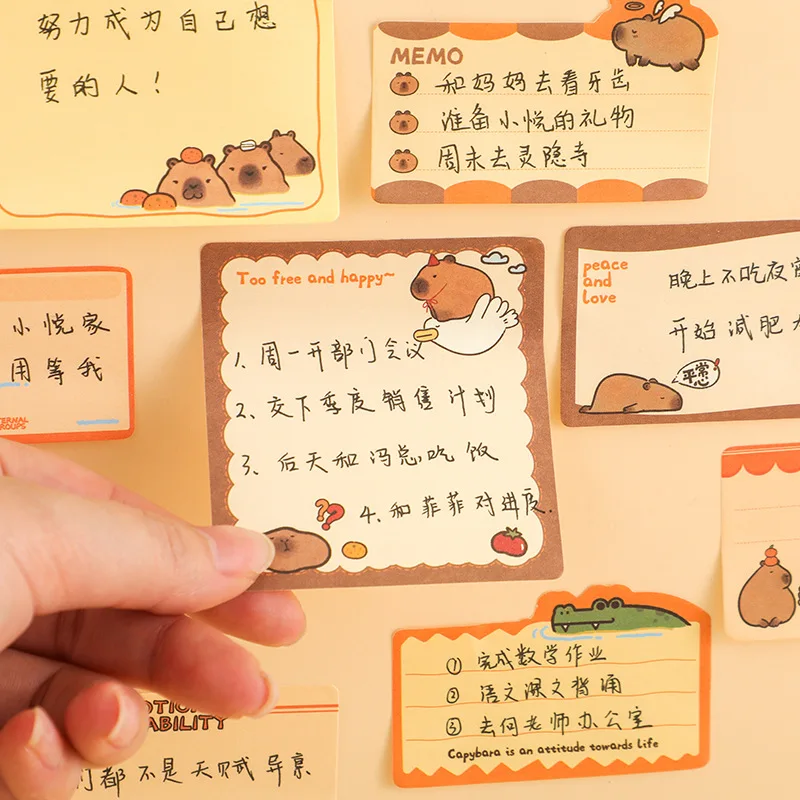 努力成为自己想
要的人！
MEMO
和妈妈去看牙齿
准备小悦的礼物
周末去灵隐寺
小悦家
用等我
Too free and happy~
1、周一开部门会议
2、交下季度销售计划
3、后天和冯总吃饭
4、和菲菲对进度.
??
peace
and
love
晚上不吃夜宵
开始减肥
平常心
① 完成数学作业
② 语文课文背诵
③ 去何老师办公室
Capybara is an attitude towards life
ABILITY
们都不是天赋异禀